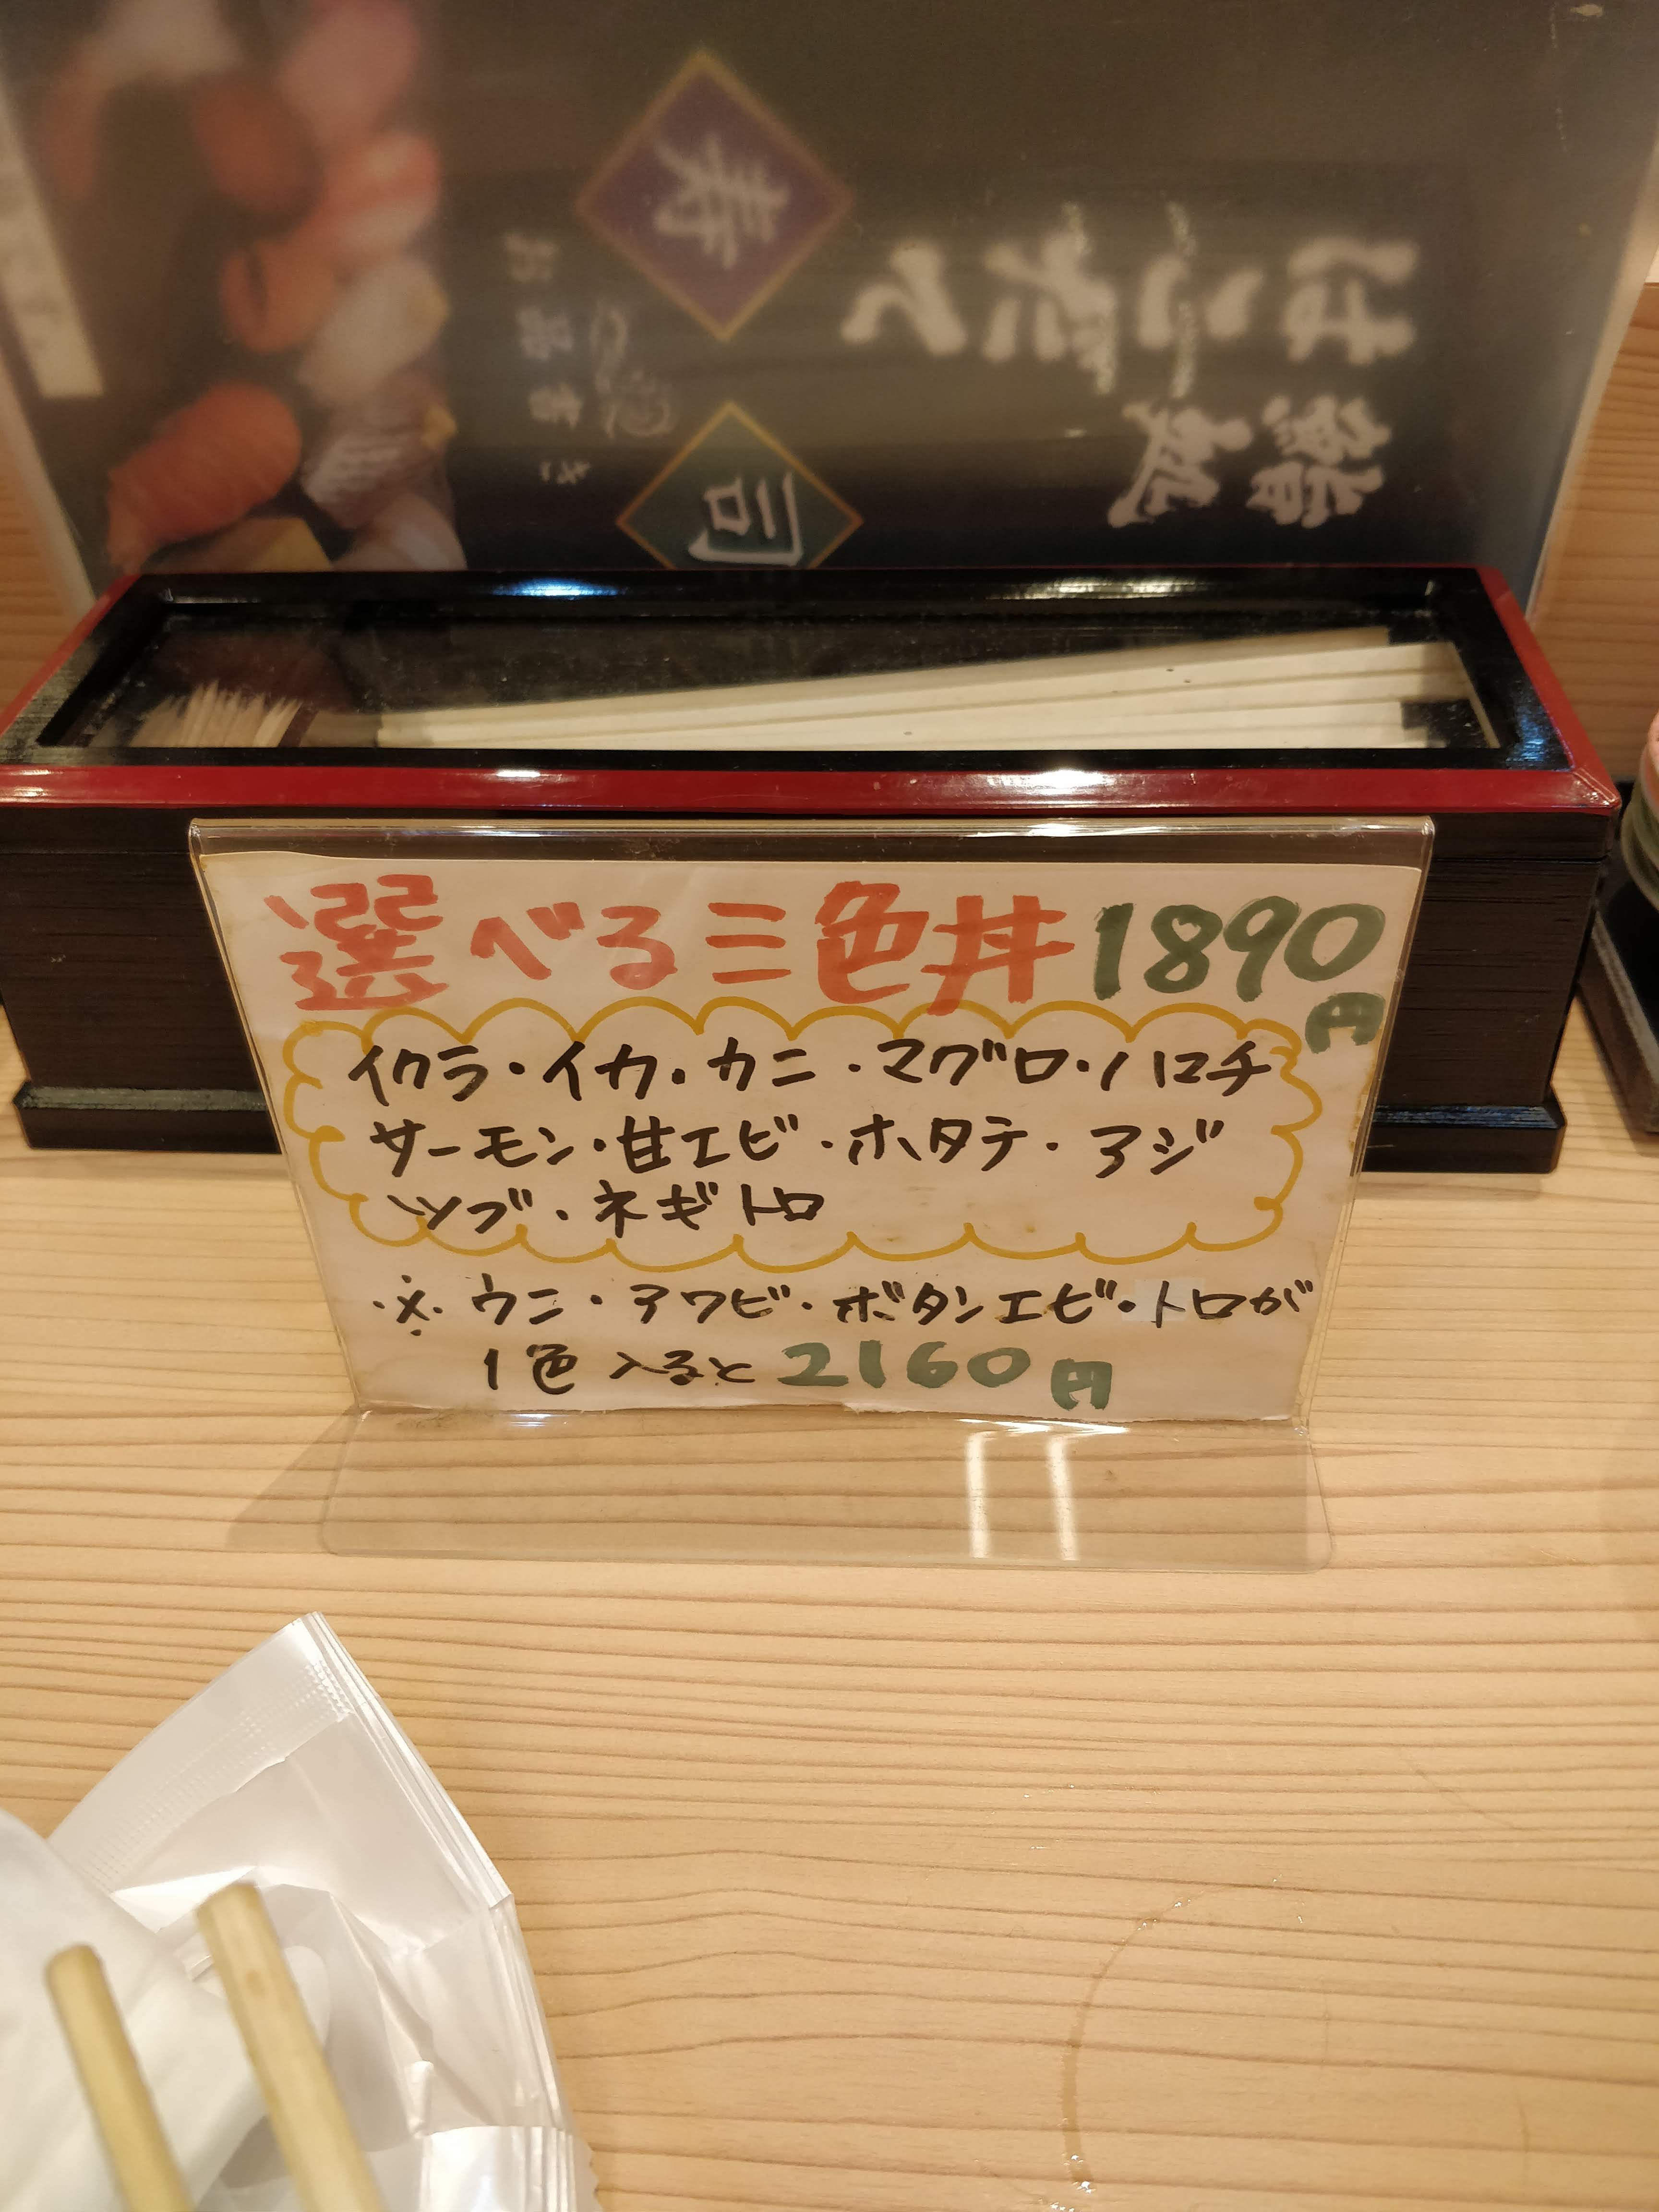 寿
司
お品書き
はこだて
鮨
選べる三色丼1890円
イクラ・イカ・カニ・マグロ・ハマチ
サーモン・甘エビ・ホタテ・アジ
ツブ・ネギトロ
※ウニ・アワビ・ボタンエビ・トロが
1色入ると2160円